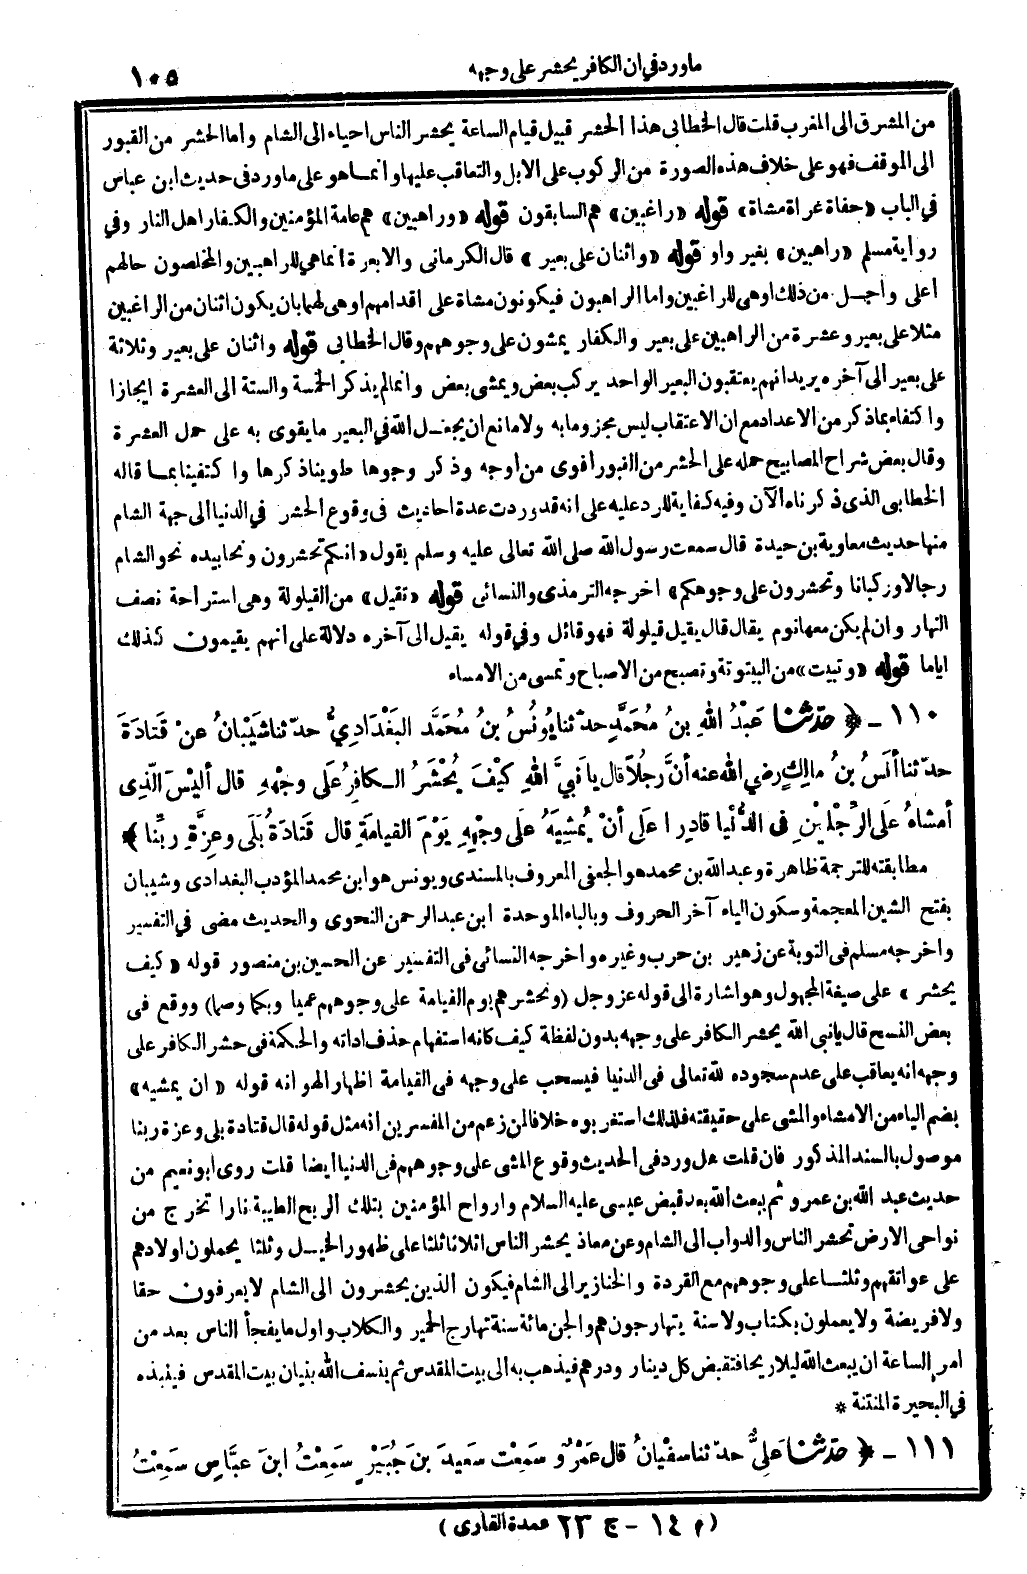 ماورد في ان الكافر يحشر على وجهه
١٠٥
من المشرق الى المغرب قلت قال الخطابى هذا الحشر قبيل قيام الساعة يحشر الناس احياء الى الشام واما الحشر من القبور
الى الموقف فهو على خلاف هذه الصورة من الركوب على الابل والتعاقب عليها وانما هو على ماورد فى حديث ابن عباس
في الباب «حفاة عراة مشاة» قوله «راغبين» هم السابقون قوله «وراهبين» هم عامة المؤمنين والكفار اهل النار وفي
رواية مسلم «راهبين» بغير واو قوله «واثنان على بعير» قال الكرمانى والابعرة انما هي للراهبين والمخلصون حالهم
اعلى واجل من ذلك او هى للراغبين واما الراهبون فيكونون مشاة على اقدامهم او هى لهما بان يكون اثنان من الراغبين
مثلا على بعير وعشرة من الراهبين على بعير والكفار يمشون على وجوههم وقال الخطابى قوله واثنان على بعير وثلاثة
على بعير الى آخره يريد انهم يعتقبون البعير الواحد يركب بعض ويمشى بعض وانما لم يذكر الخمسة والستة الى العشرة ايجازا
واكتفاء بماذكر من الاعداد مع ان الاعتقاب ليس مجزوما به ولا مانع ان يجعل الله في البعير ما يقوى به على حمل العشرة
وقال بعض شراح المصابيح حمله على الحشر من القبور اقوى من اوجه وذكر وجوها طوينا ذكرها واكتفينا بما قاله
الخطابى الذى ذكرناه الآن وفيه كفاية للرد عليه على انه قد وردت عدة احاديث فى وقوع الحشر في الدنيا الى جهة الشام
منها حديث معاوية بن حيدة قال سمعت رسول الله صلى الله تعالى عليه وسلم يقول «انكم تحشرون ونحا بيده نحو الشام
رجالا وركبانا وتحشرون على وجوهكم» اخرجه الترمذى والنسائى قوله «تقيل» من القيلولة وهى استراحة نصف
النهار وان لم يكن معها نوم يقال قال يقيل قيلولة فهو قائل وفي قوله يقيل الى آخره دلالة على انهم يقيمون كذلك
اياما قوله «وتبيت» من البيتوتة وتصبح من الاصباح وتمسى من الامساء
١١٠ - ﴿ حَدَّثَنَا عَبْدُ اللهِ بنُ مُحَمَّدٍ حدّثنا يُونُسُ بنُ مُحَمَّدٍ البَغْدَادِيُّ حدّثنا شَيْبَانُ عنْ قَتَادَةَ
حدّثنا أنَسُ بنُ مالِكٍ رضي الله عنه أنَّ رجُلاً قال يا نَبيَّ اللهِ كَيْفَ يُحْشَرُ الكافِرُ عَلى وجْهِهِ قال أليْسَ الَّذِى
أمْشاهُ عَلى الرِّجْلَيْنِ فى الدُّنْيا قادِرًا عَلى أنْ يُمْشِيَهُ عَلى وجْهِهِ يَوْمَ القِيامَةِ قال قَتَادَةُ بَلَى وعِزَّةِ ربِّنا ﴾
مطابقته للترجمة ظاهرة وعبد الله بن محمد هو الجعفى المعروف بالمسندى ويونس هو ابن محمد المؤدب البغدادى وشيبان
بفتح الشين المعجمة وسكون الياء آخر الحروف وبالباء الموحدة ابن عبد الرحمن النحوى والحديث مضى في التفسير
واخرجه مسلم فى التوبة عن زهير بن حرب وغيره واخرجه النسائى فى التفسير عن الحسين بن منصور قوله «كيف
يحشر» على صيغة المجهول وهو اشارة الى قوله عز وجل (ونحشرهم يوم القيامة على وجوههم عميا وبكما وصما) ووقع فى
بعض النسخ قال يا نبى الله يحشر الكافر على وجهه بدون لفظة كيف كانه استفهام حذف اداته والحكمة فى حشر الكافر على
وجهه انه يعاقب على عدم سجوده لله تعالى فى الدنيا فيسحب على وجهه فى القيامة اظهارا لهوانه قوله «ان يمشيه»
بضم الياء من الامشاء والمشى على حقيقته فلذلك استغربوه خلافا لمن زعم من المفسرين انه مثل قوله قال قتادة بلى وعزة ربنا
موصول بالسند المذكور فان قلت هل ورد فى الحديث وقوع المشى على وجوههم فى الدنيا ايضا قلت روى ابو نعيم من
حديث عبد الله بن عمرو ثم يبعث الله بعد قبض عيسى عليه السلام وارواح المؤمنين بتلك الريح الطيبة نارا تخرج من
نواحى الارض تحشر الناس والدواب الى الشام وعن معاذ يحشر الناس اثلاثا ثلثا على ظهور الخيل وثلثا يحملون اولادهم
على عواتقهم وثلثا على وجوههم مع القردة والخنازير الى الشام فيكون الذين يحشرون الى الشام لا يعرفون حقا
ولا فريضة ولا يعملون بكتاب ولا سنة يتهارجون هم والجن مائة سنة تهارج الحمير والكلاب واول ما يفجأ الناس بعد من
امر الساعة ان يبعث الله ليلا ريحا فتقبض كل دينار ودرهم فيذهب به الى بيت المقدس ثم ينسف الله بنيان بيت المقدس فينبذه
في البحيرة المنتنة *
١١١ - ﴿ حَدَّثَنَا عَلِيٌّ حدّثنا سفْيانُ قال عَمْرٌو سَمِعْتُ سَعِيدَ بنَ جُبَيْرٍ سَمِعْتُ ابنَ عبَّاسٍ سَمِعْتُ
(م ١٤ - ج ٢٣ عمدة القارى)